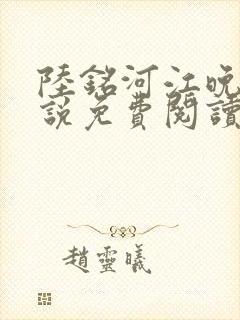 陸銘河江晚
說免費閱讀
趙靈曦